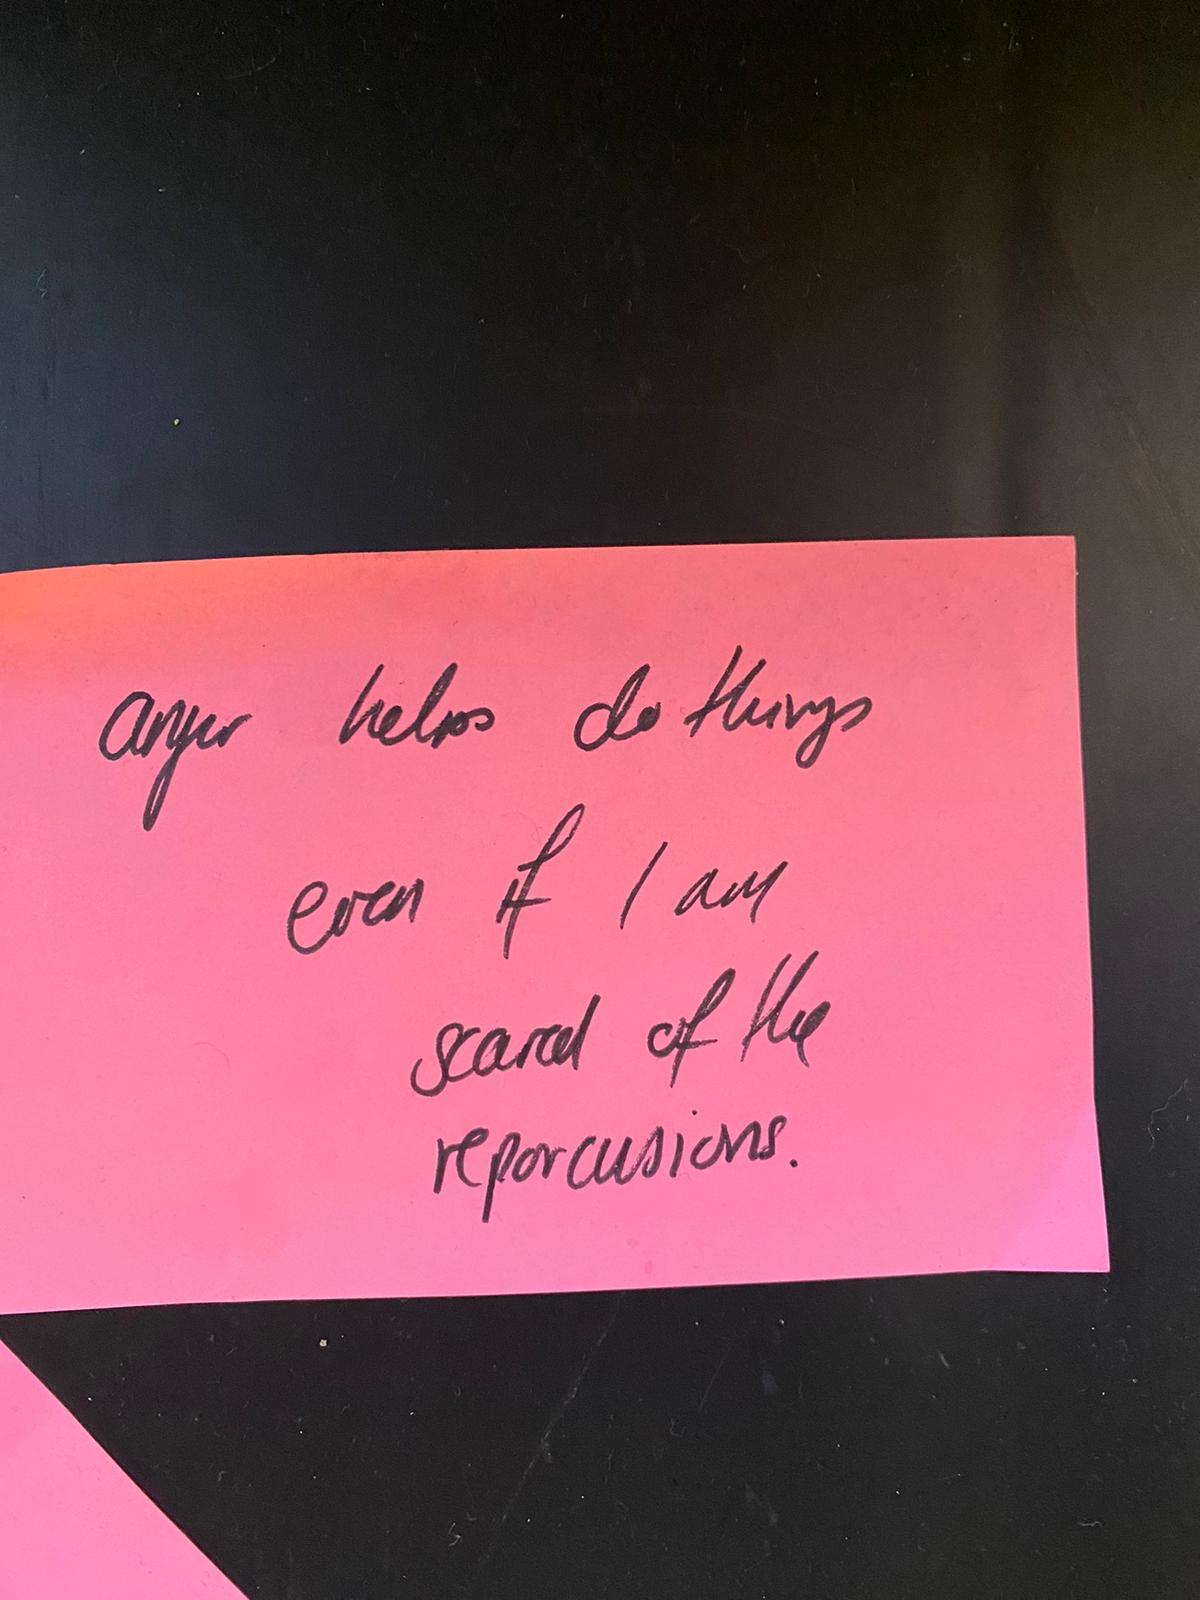 anger helps do things
even if I am
scared of the
reporcusions.